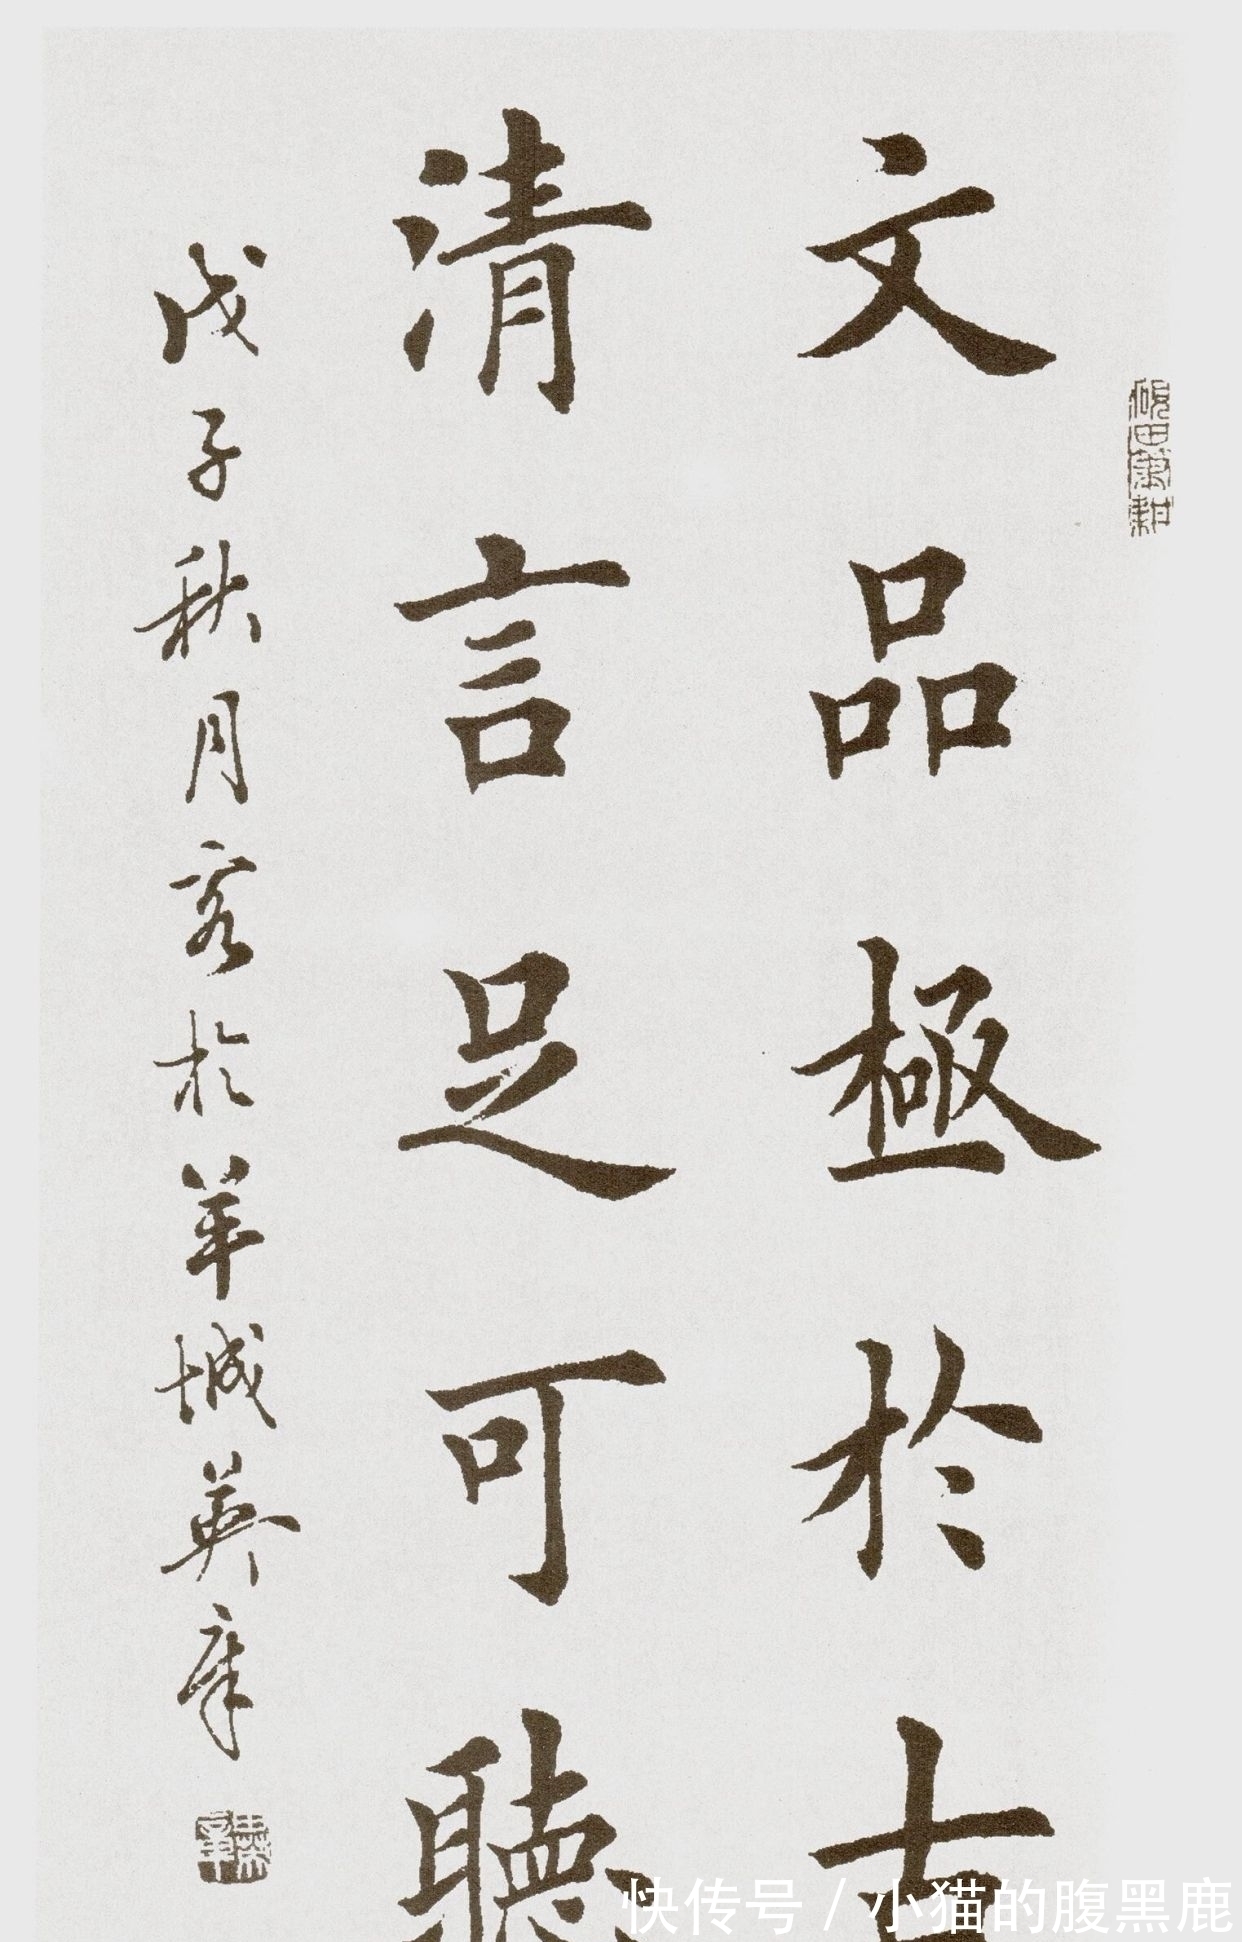 文品極於古
清言足可聽
戊子秋月客於羊城英章
快传号 / 小猫的腹黑鹿